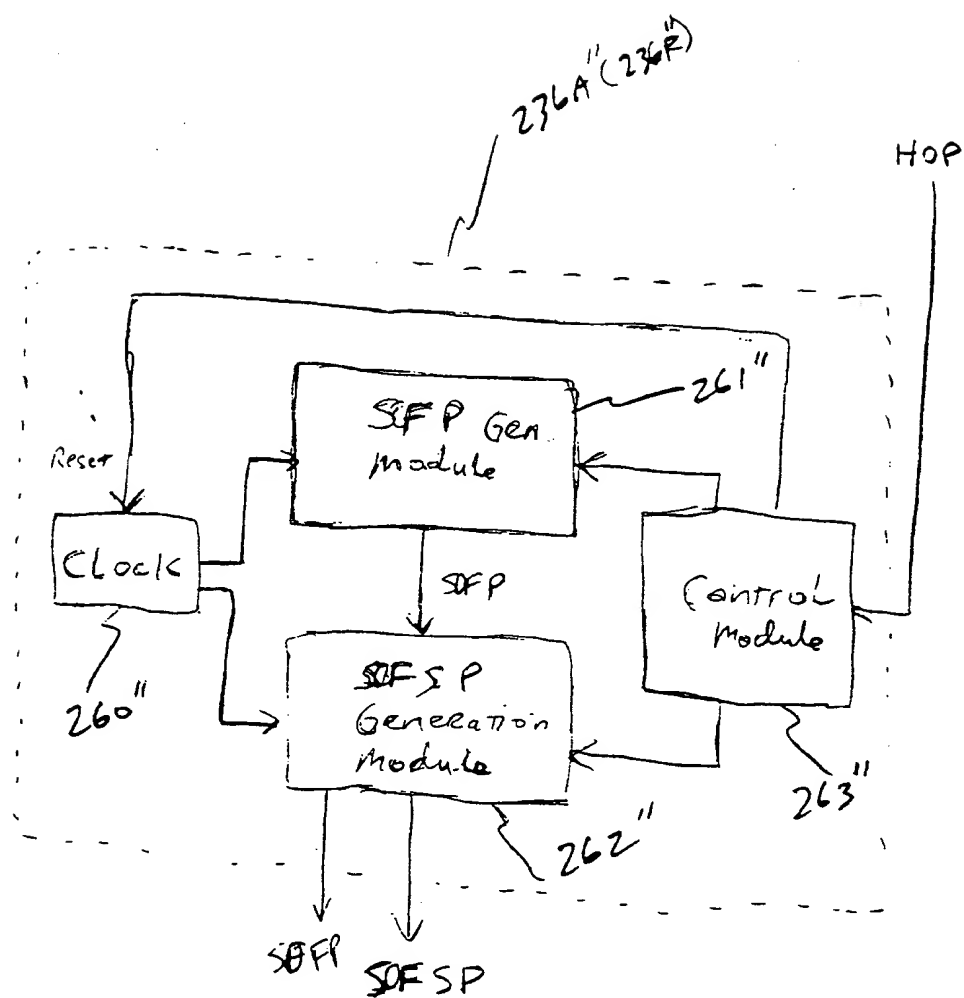 236A" (236R")
HOP
261"
SOFP Gen.
Module
Reset
Clock
SOFP
Control
Module
260"
SOFSP
Generation
Module
263"
262"
SOFP
SOFSP